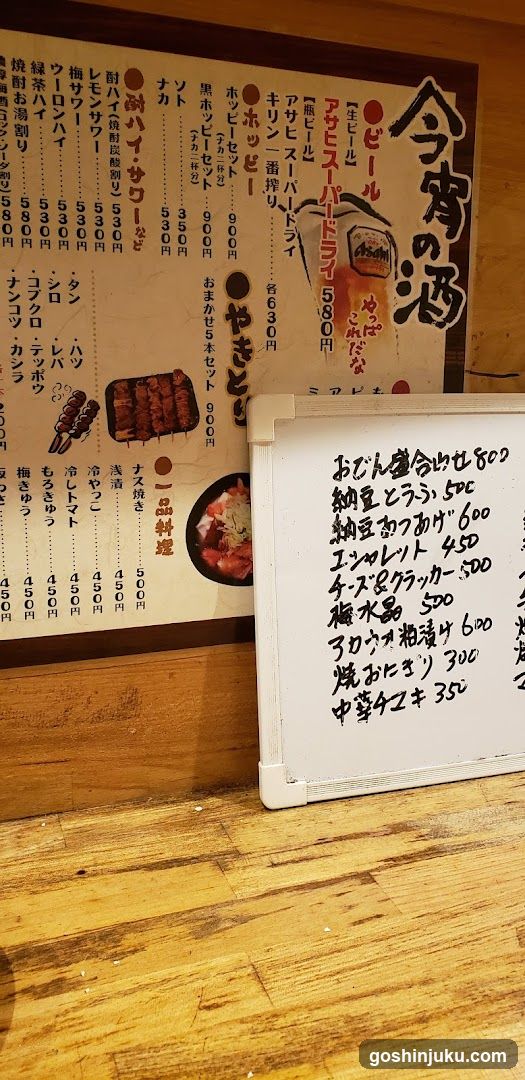 今宵の酒
●ビール
【生ビール】
アサヒスーパードライ 580円
やっぱこれだな
Asahi
【瓶ビール】
アサヒ スーパードライ
キリン 一番搾り 各630円
●ホッピー
ホッピーセット 900円
(ナカ二杯分)
黒ホッピーセット 900円
(ナカ二杯分)
ソト 350円
ナカ 530円
●酎ハイ・サワーなど
酎ハイ(焼酎炭酸割り) 530円
レモンサワー 530円
梅サワー 530円
ウーロンハイ 530円
緑茶ハイ 530円
焼酎お湯割り 580円
580円
●やきとり
おまかせ5本セット 900円
・タン ・ハツ
・シロ ・レバ
・コブクロ ・テッポウ
・ナンコツ ・カシラ
200円
●一品料理
ナス焼き 500円
浅漬 450円
冷やっこ 450円
冷しトマト 450円
もろきゅう 450円
梅きゅう 450円
450円
おでん盛合わせ 800
納豆とうふ 500
納豆あつあげ 600
エシャレット 450
チーズ&クラッカー 500
梅水晶 500
アカウオ粕漬け 600
焼おにぎり 300
中華チマキ 350
goshinjuku.com